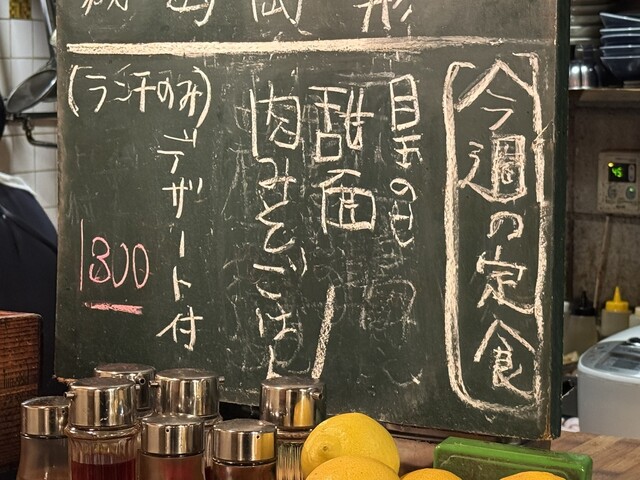 今週の定食
目玉のせ
甜面
肉みそごはん
(ランチのみ)
デザート付
1300
45